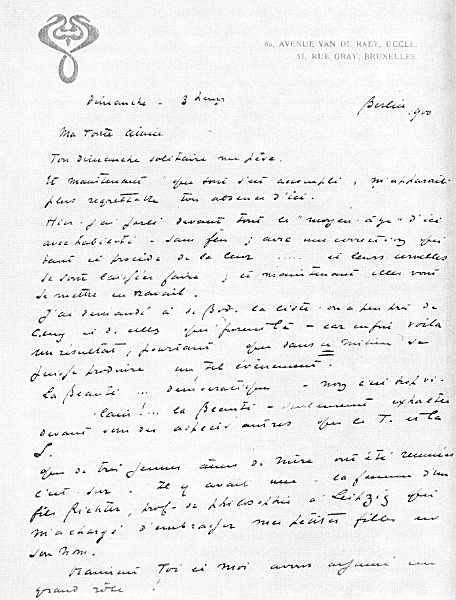 80, AVENUE VAN DE RAEY, UCCLE.
53, RUE GRAY, BRUXELLES.
Dimanche - 3 heures Berlin 1900
Ma toute aimée
Ton dimanche solitaire me pèse.
Et maintenant que tout s'est accompli, m'apparait
plus regrettable ton absence d'ici.
Hier j'ai parlé devant tout le "moyen-âge" d'ici
avec habileté - sans feu; avec une correction qui
tant et procède de la leur ..... et leurs cervelles
se sont laissées faire; et maintenant elles vont
se mettre en travail.
J'ai demandé à de Bod. la liste - on a peu pri de
ceux et de celles qui furent là - car enfin voila
un résultat, pourtant que dans ce milieu se
puisse produire un tel évènement.
La Beauté ... démocratique -
... la Beauté - seulement exaltée
devant sous des aspects autres que le T. et la
S.
que de trois jeunes âmes de Mère ont été remuées
c'est sur. Il y avait une - la femme d'un
fils Richter, prof. de philosophie à Leipzig qui
m'a chargé d'embrasser mes petites filles en
son nom.
Vraiment Toi et moi avons assumé un
grand rôle !